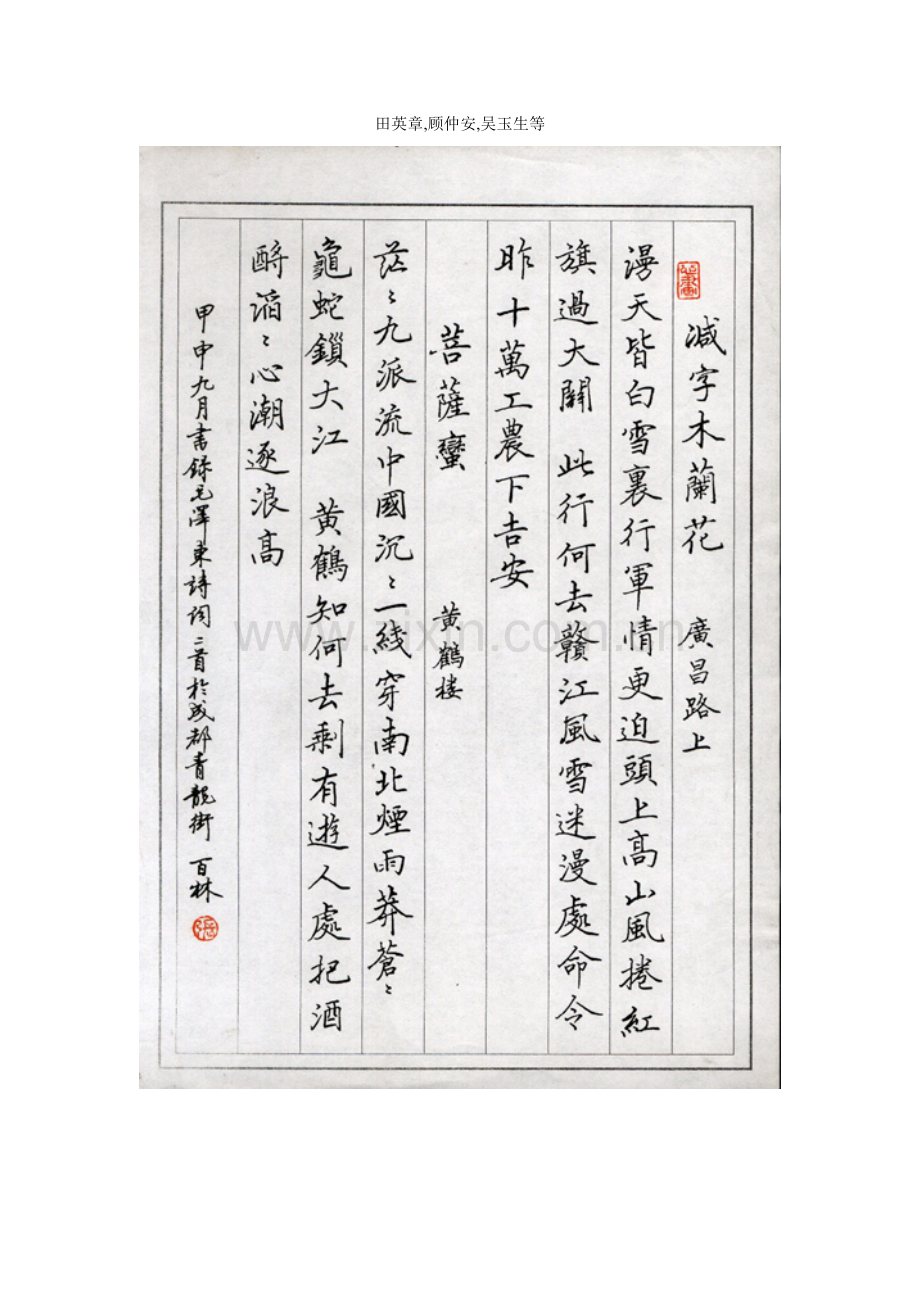 田英章,顾仲安,吴玉生等
減字木蘭花 廣昌路上
漫天皆白雪裏行軍情更迫頭上高山風捲紅
旗過大關 此行何去贛江風雪迷漫處命令
昨十萬工農下吉安
菩薩蠻 黄鶴楼
茫〻九派流中國沉〻一綫穿南北煙雨莽蒼〻
龜蛇鎖大江 黄鶴知何去剩有遊人處把酒
酹滔〻心潮逐浪高
甲申九月書録毛澤東詩詞二首於成都青龍街 百林
張
www.zixin.com.cn